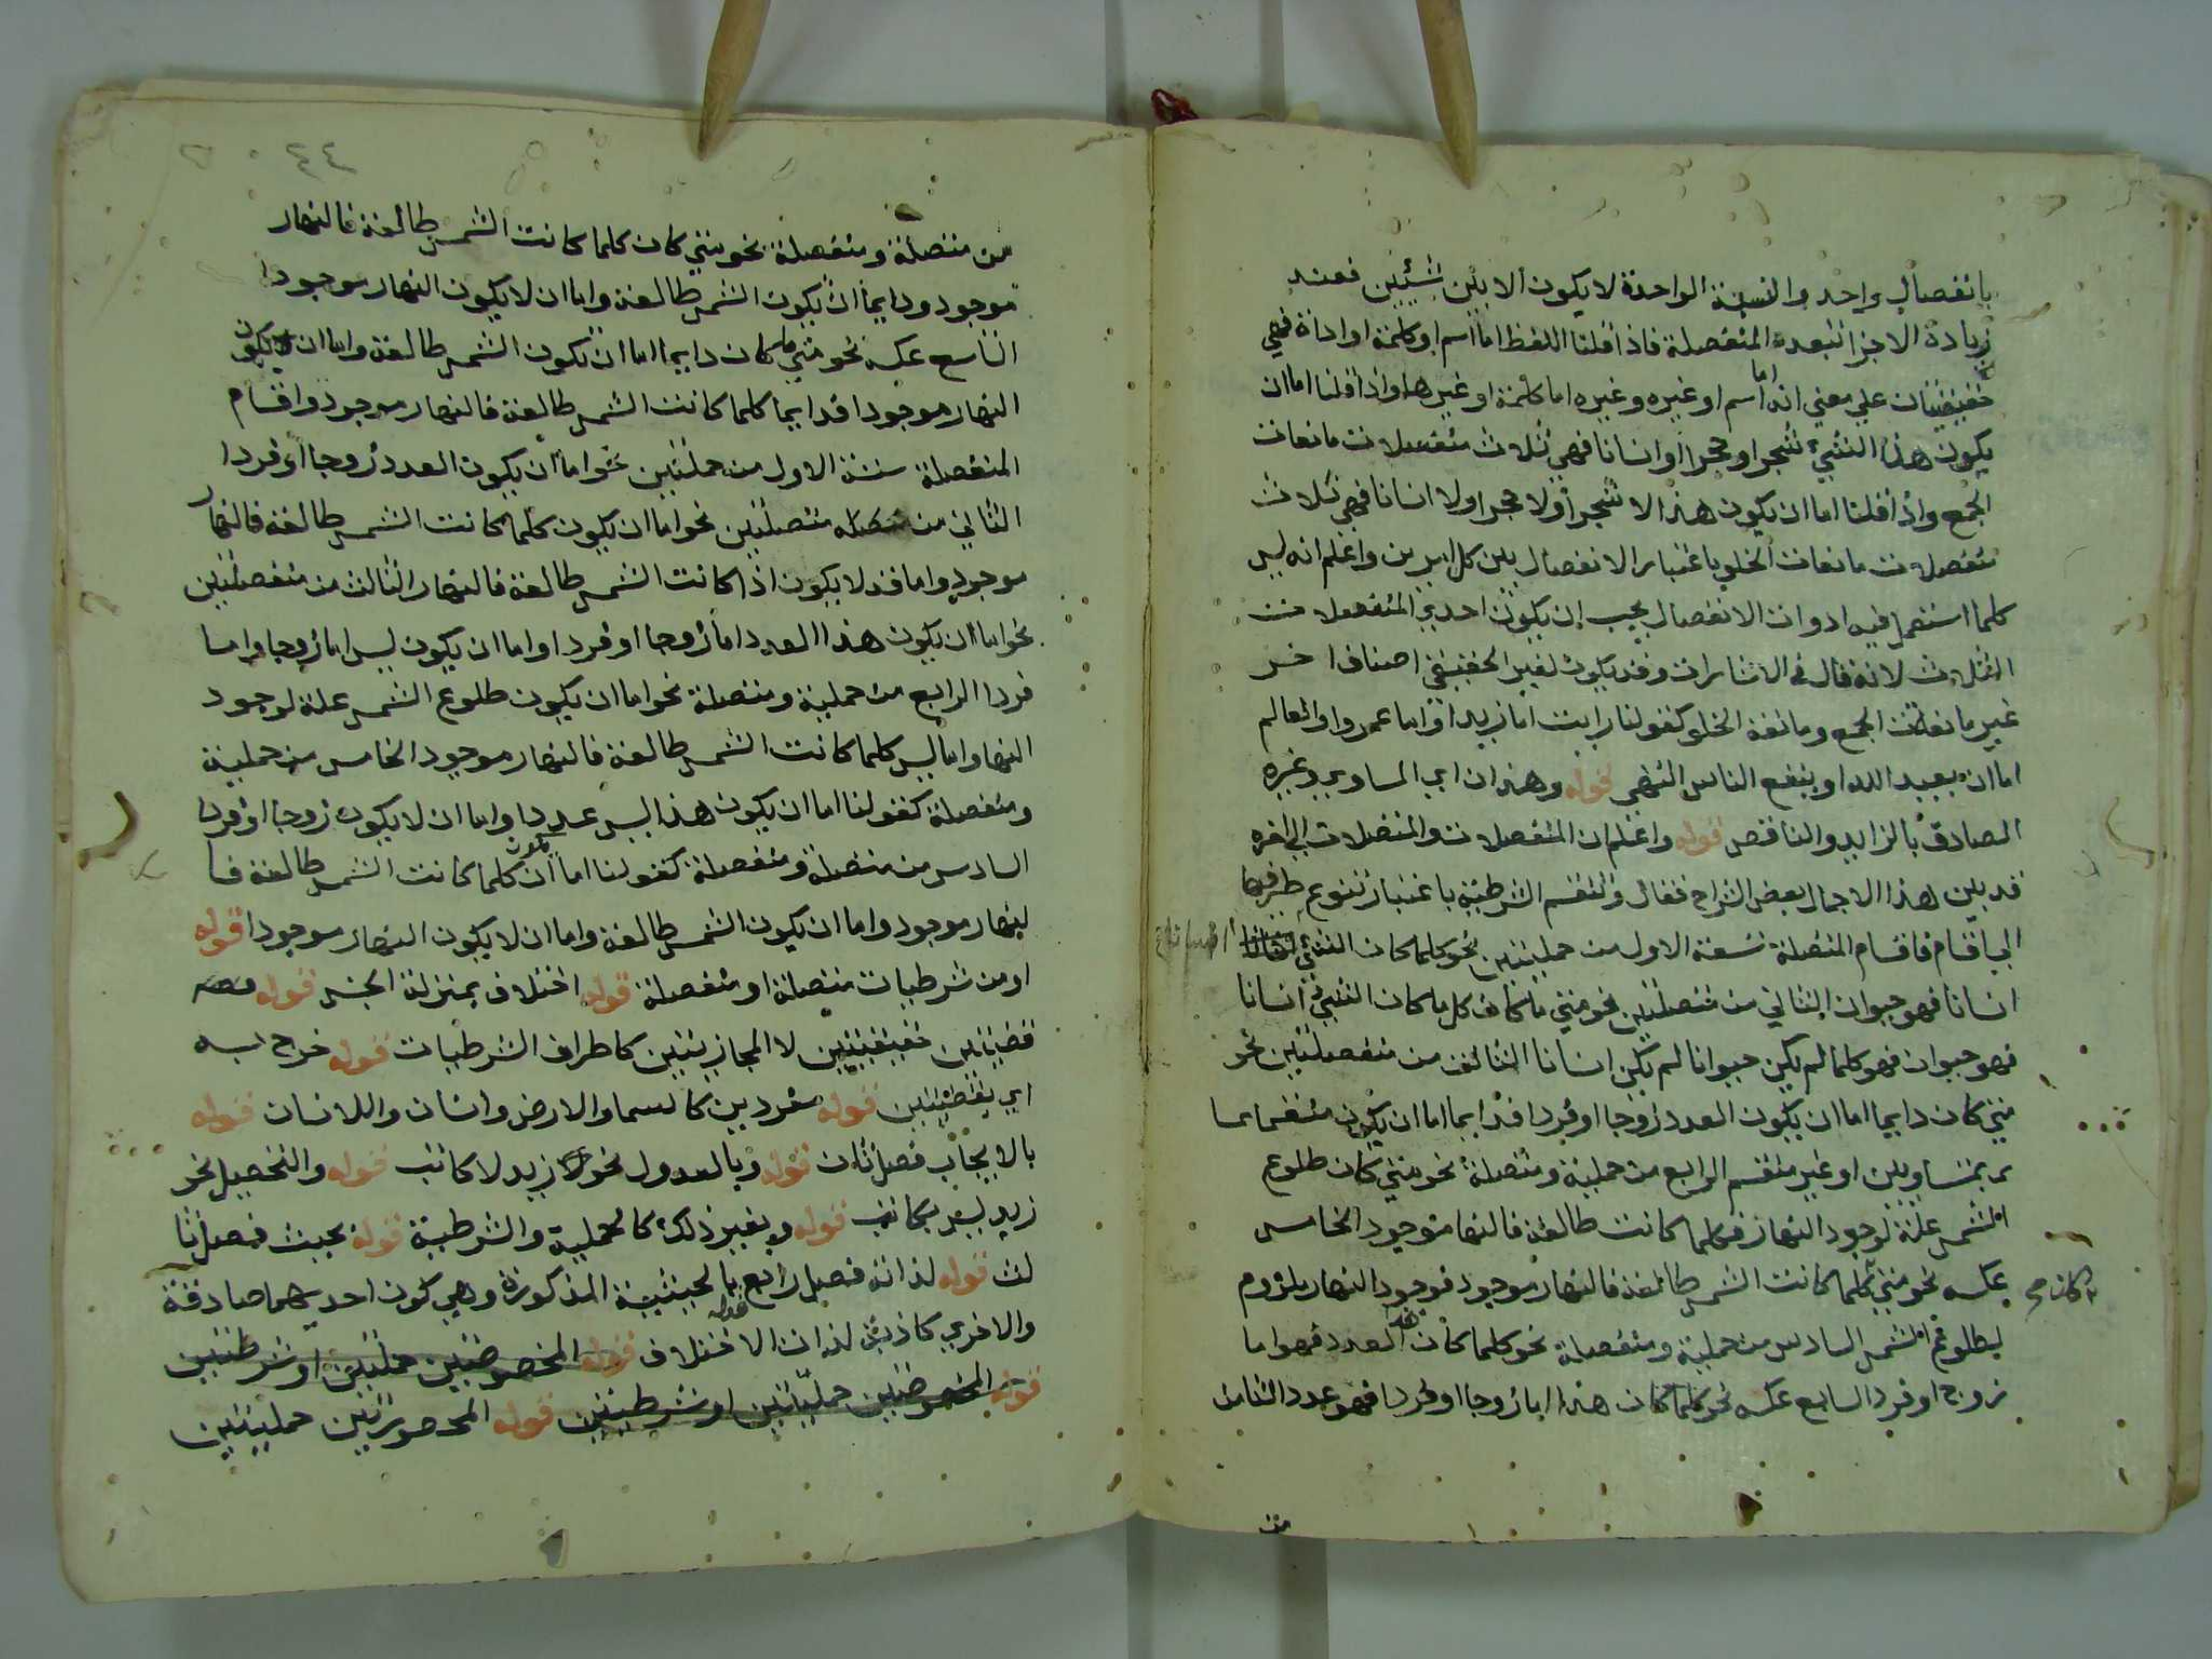 بانفصال واحد والنسبة الواحدة لا يكون الا بين شيئين فعند
زيادة الاجزا تتعدد المنفصلة فاذا قلنا اللفظ اما اسم او كلمة او اداة فهي
حقيقيتان علي معني انه اما اسم او غيره وغيره اما كلمة او غيرها واذا قلنا اما ان
يكون هذا الشيء شجرا او حجرا او انسانا فهي ثلاث منفصلات مانعات
الجمع واذا قلنا اما ان يكون هذا لا شجرا ولا حجرا ولا انسانا فهي ثلاث
منفصلات مانعات الخلو باعتبار الانفصال بين كل امرين واعلم انه ليس
كلما استعمل فيه ادوات الانفصال يجب ان يكون احدي المنفصلات
الثلاث لانه قال في الاشارات وقد يكون لغير الحقيقي اصناف اخر
غير مانعة الجمع ومانعة الخلو كقولنا رايت اما زيدا واما عمروا والعالم
اما ان يعبد الله او ينفع الناس انتهي قوله وهذان اي المساوي وغيره
الصادق بالزايد والناقص قوله واعلم ان المنفصلات والمتصلات الي اخره
قد بين هذا الاجمال بعض الشراح فقال وتنقسم الشرطية باعتبار تنوع طرفيها
الي اقسام فاقسام المتصلة تسعة الاول من حمليتين نحو كلما كان الشيء
انسانا فهو حيوان الثاني من متصلتين نحو متي ما كان كل ما كان الشيء انسانا
فهو حيوان فهو كلما لم يكن حيوانا لم يكن انسانا الثالث من منفصلتين نحو
متي كان دايما اما ان يكون العدد زوجا او فردا فدايما اما ان يكون منقسما
بمتساويين او غير منقسم الرابع من حملية ومتصلة نحو متي كان طلوع
الشمس علة لوجود النهار فكلما كانت طالعة فالنهار موجود الخامس
عكسه نحو متي كلما كانت الشمس طالعة فالنهار موجود فوجود النهار ملزوم
كان صح
لطلوع الشمس السادس من حملية ومنفصلة نحو كلما كان هذا العدد فهو اما
زوج او فرد السابع عكسه نحو كلما كان هذا اما زوجا او فردا فهو عدد الثامن
من
٤٤
من متصلة ومنفصلة نحو متي كان كلما كانت الشمس طالعة فالنهار
موجود ودايما ان يكون الشمس طالعة واما ان لا يكون النهار موجودا
التاسع عكسه نحو متي ما كان دايما اما ان تكون الشمس طالعة واما ان لا يكون
النهار موجودا فدايما كلما كانت الشمس طالعة فالنهار موجود واقسام
المنفصلة ستة الاول من حمليتين نحو اما ان يكون العدد زوجا او فردا
الثاني من متصلتين نحو اما ان يكون كلما كانت الشمس طالعة فالنهار
موجود واما قد لا يكون اذا كانت الشمس طالعة فالنهار الثالث من منفصلتين
نحو اما ان يكون هذا العدد اما زوجا او فردا واما ان يكون ليس اما زوجا واما
فردا الرابع من حملية ومتصلة نحو اما ان يكون طلوع الشمس علة لوجود
النهار واما ليس كلما كانت الشمس طالعة فالنهار موجود الخامس من حملية
ومنفصلة كقولنا اما ان يكون هذا ليس عددا واما ان لا يكون زوجا او فردا
السادس من متصلة ومنفصلة كقولنا اما ان يكون كلما كانت الشمس طالعة فا
لنهار موجود واما ان يكون الشمس طالعة واما ان لا يكون النهار موجودا قوله
او من شرطيات متصلة او منفصلة قوله اختلاف بمنزلة الجنس قوله
قضيتين حقيقيتين لا المجازيتين كاطراف الشرطيات قوله خرج به
اي بقضيتين قوله مفردين كالسما والارض وانسان واللانسان قوله
بالايجاب فصل ثان قوله وبالعدول نحو زيد لا كاتب قوله والتحصيل نحو
زيد ليس بكاتب قوله وبغير ذلك كالحملية والشرطية قوله بحيث فصل ثا
لث قوله لذاته فصل رابع بالحيثية المذكورة وهي كون احديهما صادقة
والاخري كاذبة لذات الاختلاف قوله المخصوصتين حمليتين او شرطيتين
قوله المخصوصتين حمليتين او شرطيتين قوله المحصورتين حمليتين